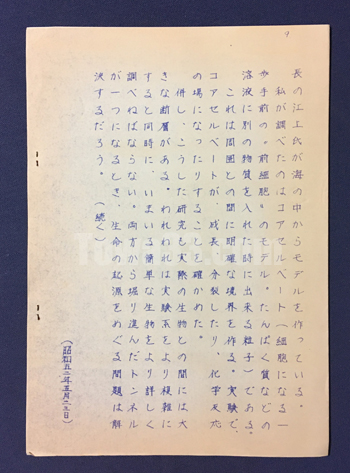 9
長の江上氏が海の中からモデルを作っている。
私が調べたのはコアセルベート（細胞になる一
や手前の〝前細胞〟のモデル。たんぱく質などの
溶液に別の物質を入れた時に出来る粒子）である。
これは周囲との間に明確な境界を作る。実験で、
コアセルベートが、成長、分裂したり、化学反応
の場になったりすることを確かめた。
併し、こうした研究も実際の生物との間には大
きな断層がある。われわれは実験系をより複雑に
すると同時に、いまいる簡単な生物をより詳しく
調べねばならない。両方から堀り進んだトンネル
が一つになるとき、生命の起源をめぐる問題は解
決するだろう。（続く）
（昭和五二年五月二三日）